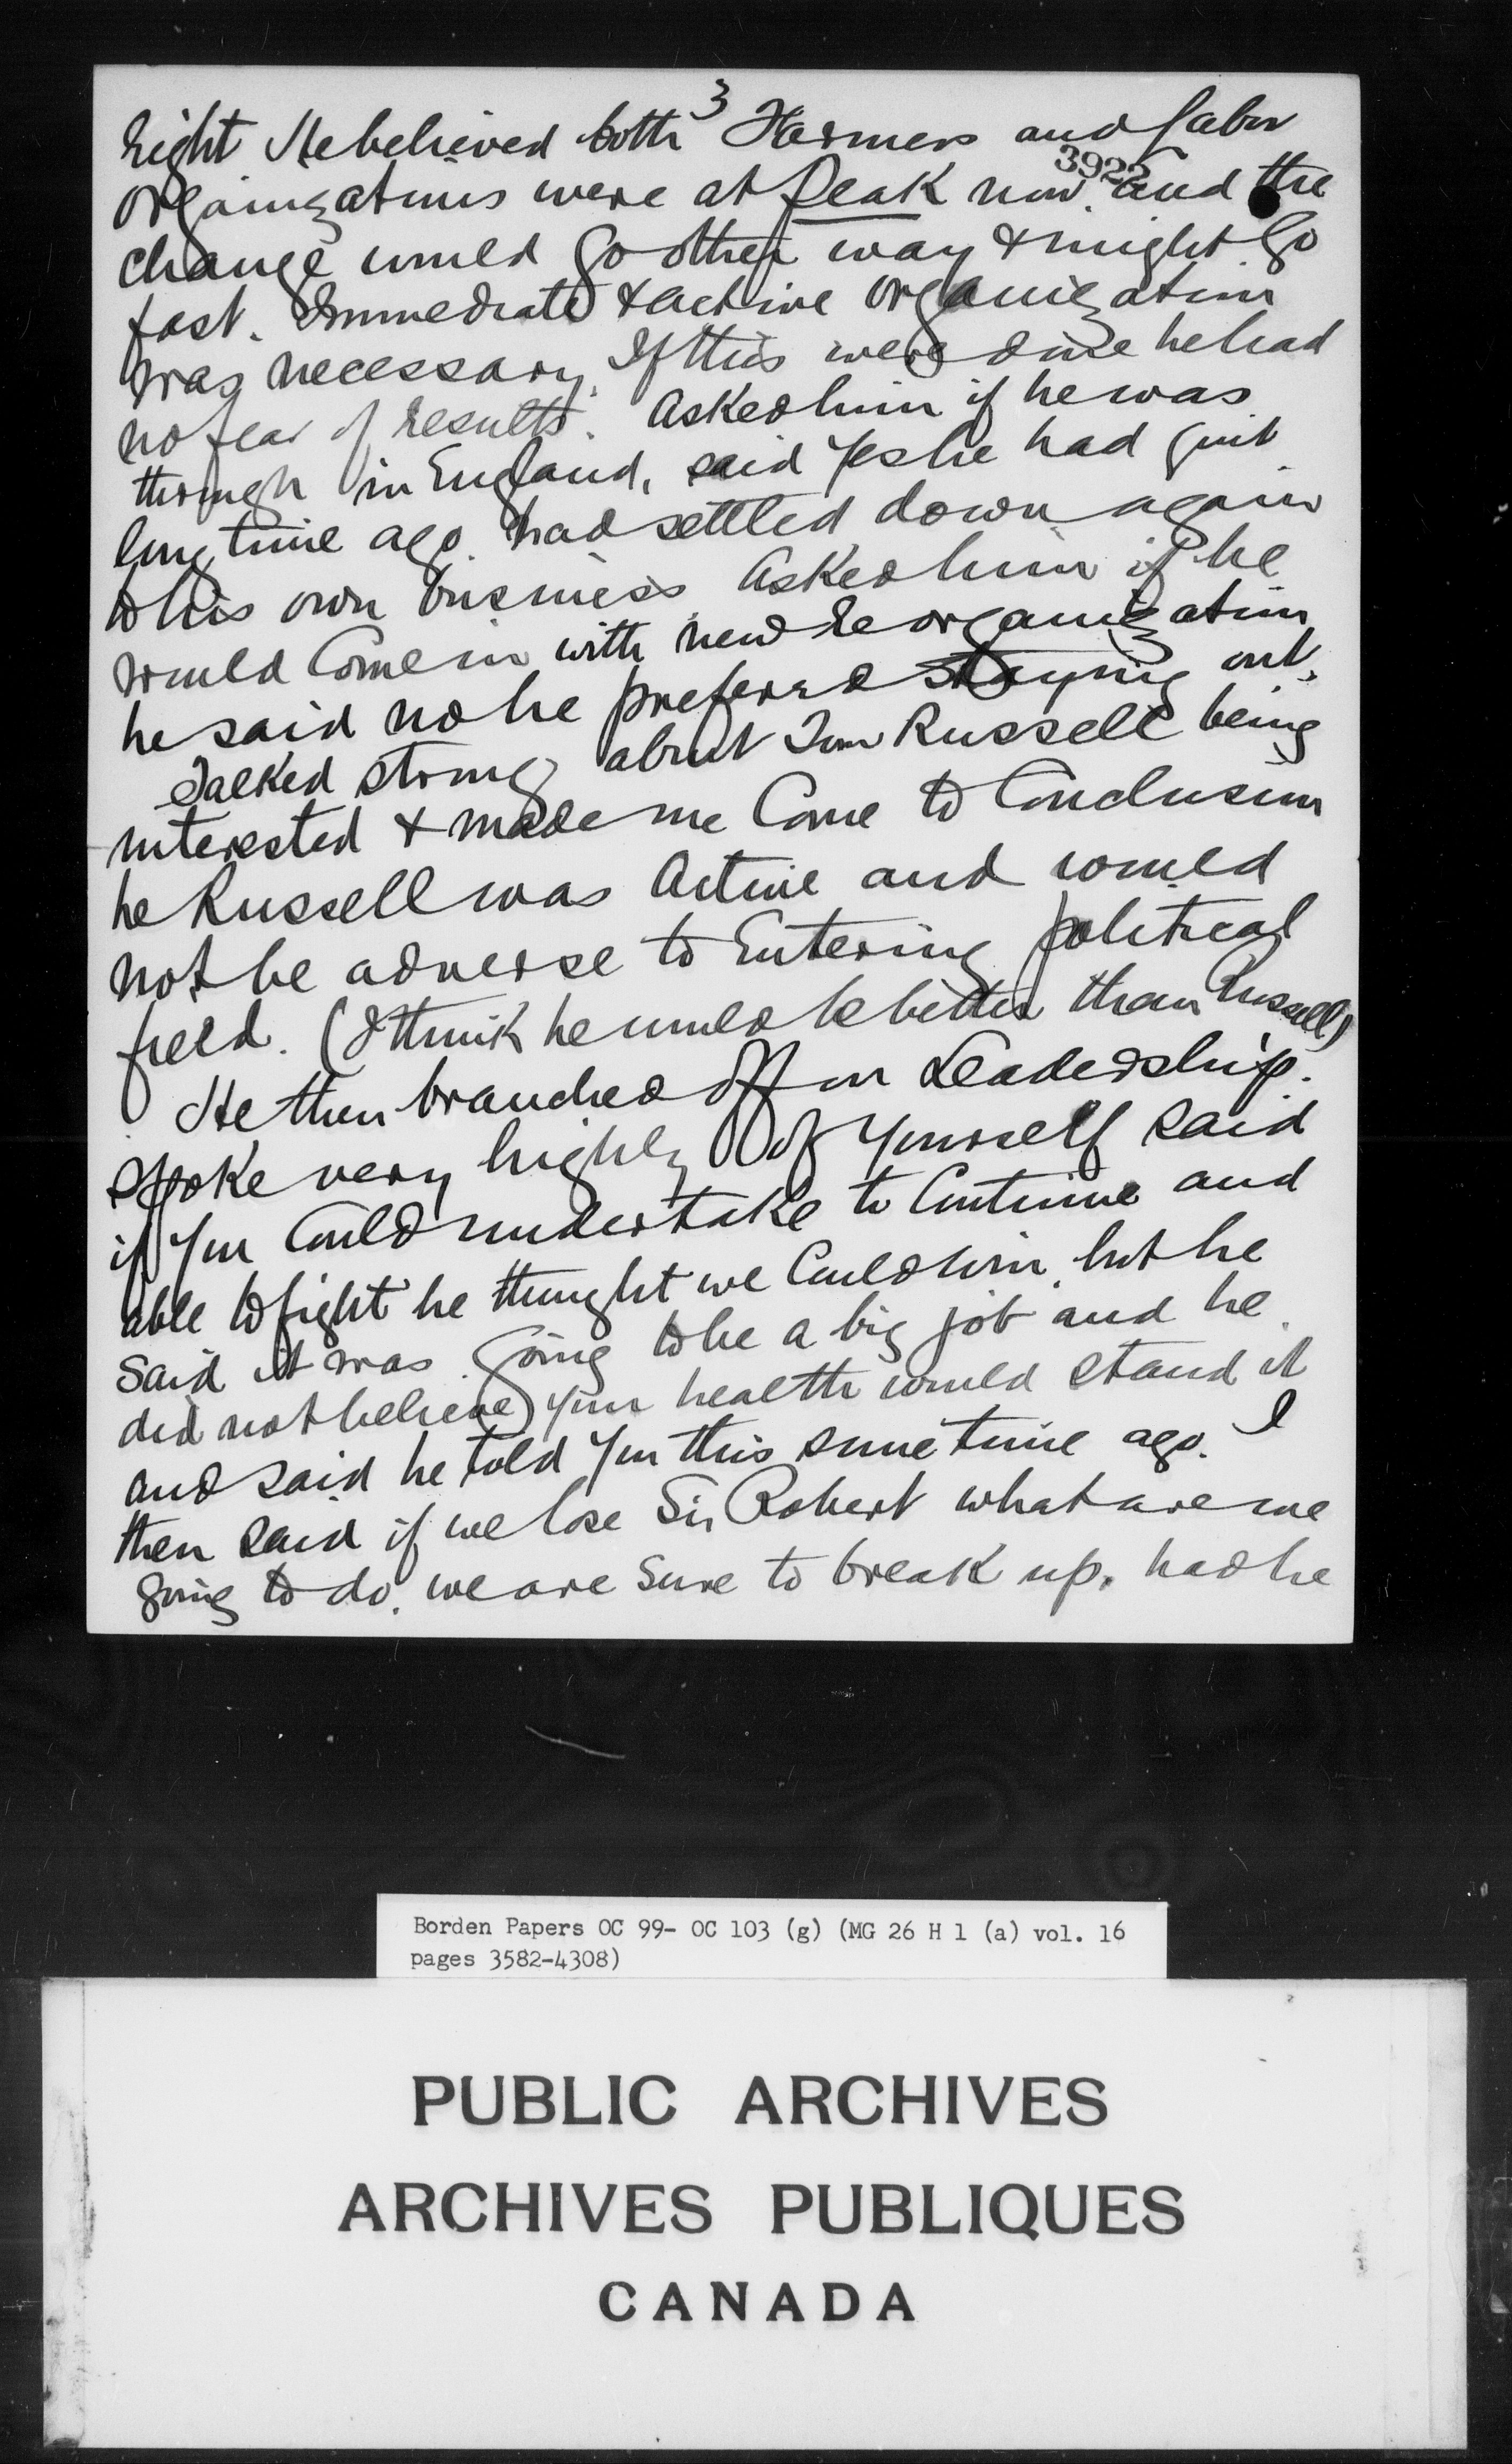 3
right He believed both Farmers and Labor
3922
organizations were at peak now. and the
change would go other way & might go
fast. Immediate & active organization
was necessary. If this were done he had
no fear of results. Asked him if he was
through in England, said yes he had quit
long time ago. had settled down again
to his own business. Asked him if he
would come in with new reorganization
he said no he preferred staying out.
Talked strong about Tom Russell being
interested & made me come to conclusion
he Russell was active and would
not be adverse to entering political
field. (I think he would be better than Russell)
He then branched off on Leadership.
spoke very highly of yourself said
if you could undertake to continue and
able to fight he thought we could win. but he
said it was going to be a big job and he
did not believe your health would stand it
and said he told you this some time ago. I
then said if we lose Sir Robert what are we
going to do. we are sure to break up. had he
Borden Papers OC 99- OC 103 (g) (MG 26 H 1 (a) vol. 16
pages 3582-4308)
PUBLIC ARCHIVES
ARCHIVES PUBLIQUES
CANADA